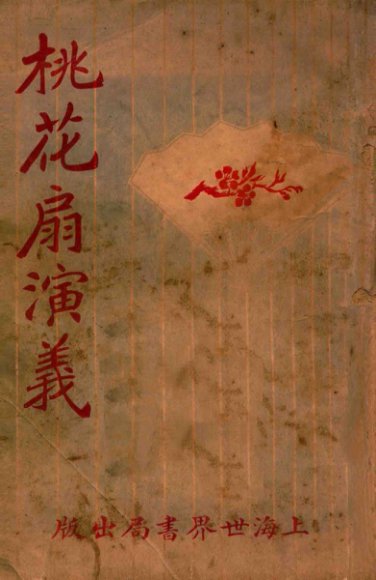 桃花扇演義
上海世界書局出版